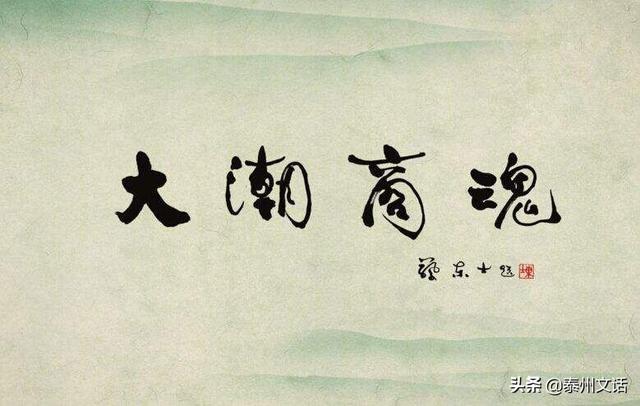 大潮商魂
东士题
头条 @泰州文话